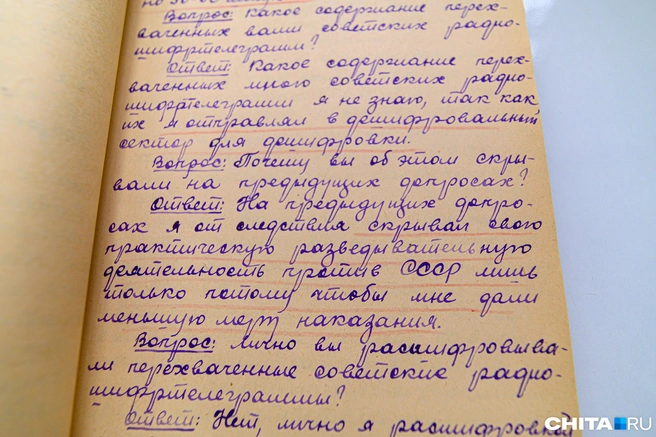 Вопрос: Какое содержание перех-
ваченных вами советских радио-
шифртелеграмм?
Ответ: Какое содержание перех-
ваченных мною советских радио-
шифртелеграмм я не знаю, так как
их я отправлял в дешифровальный
сектор для дешифровки.
Вопрос: Почему вы об этом скры-
вали на предыдущих допросах?
Ответ: На предыдущих допро-
сах я от следствия скрывал свою
практическую разведывательную
деятельность против СССР лишь
только потому чтобы мне дали
меньшую мер наказания.
Вопрос: лично вы расшифровыва-
ли перехваченные советские радио-
шифртелеграммы?
Ответ: Нет, лично я расшифровкой
CHITA.RU